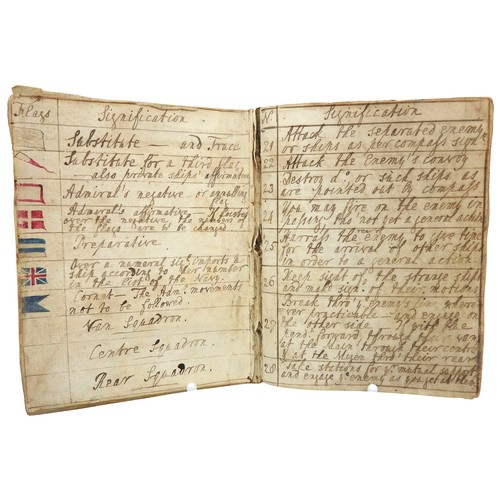 Flags Signification
Substitute — and Truce
Substitute for a third flag
— also private ships' affirmative
Admiral's negative or annulling
flag
Admiral's affirmative. If hoisted
over the negative, the numbers of
the flags are to be changed
Preparative.
Over a numeral sig: imports a
ship according to her number
in the list of the Navy.
Cornet. The Adm: movements
not to be followed.
Van Squadron.
Centre Squadron.
Rear Squadron.
N Signification
21 Attack the separated enemy
or ships as per compass sign
22 Attack the Enemy's convoy
23 Destroy do. or such ships as
are pointed out by compass
24 You may fire on the enemy in
passing tho' not get a general action
25 Harrass the enemy to give time
for the arrival of other ships
in order to a general action
26 Keep sight of the strange
and make sign. of their motions
27 Break thro' ye enemy's line where
ever practicable — and engage on
the other side. If with the
forward, through their van
at the Main through their centre
at the Mizen thro' their rear
28 Take stations for ye mutual support
and engage ye enemy as you get at them